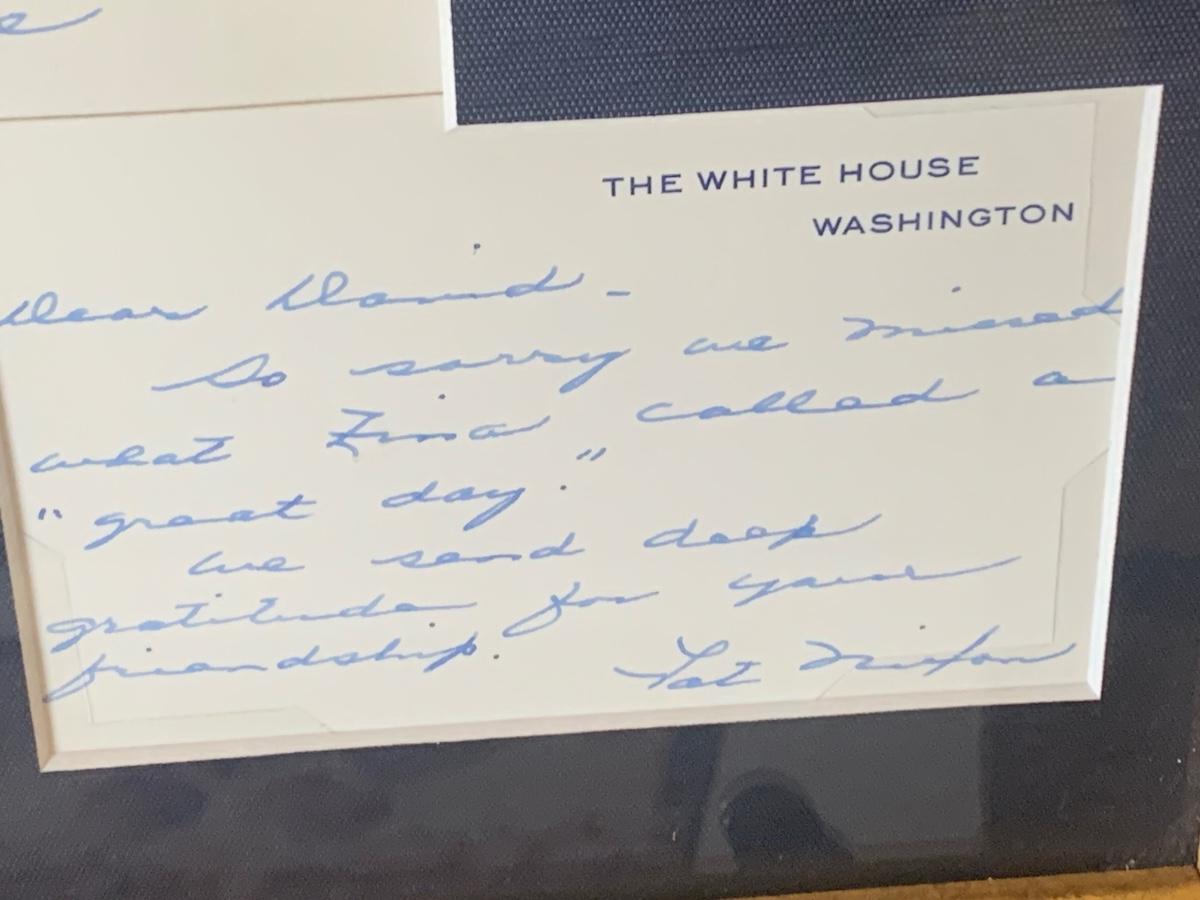 THE WHITE HOUSE
WASHINGTON
Dear David -
So sorry we missed
what Zina called a
"great day."
We send deep
gratitude for your
friendship.
Pat Nixon